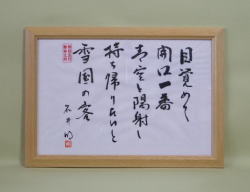 目覚めて
開口一番
青空と陽射し
持ち帰りたいと
雪国の客